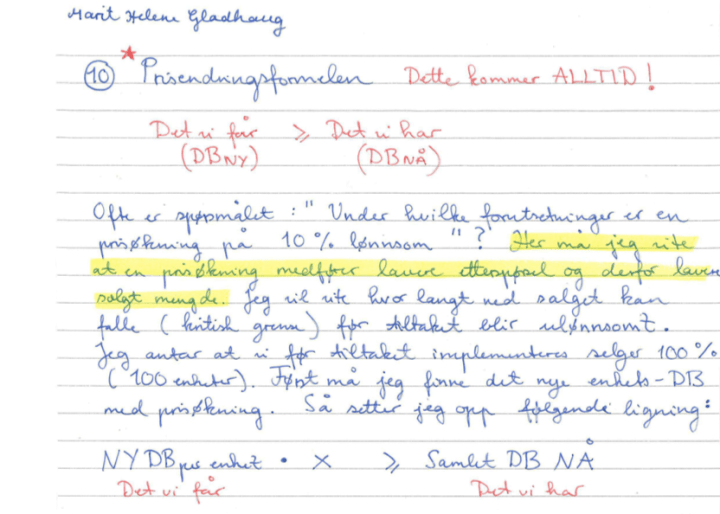 Marit Helene Gladhaug
* ⑩ Prisendringsformelen Dette kommer ALLTID!
Det vi får ≥ Det vi har
(DB NY) (DB NÅ)
Ofte er spørsmålet : " Under hvilke forutsetninger er en
prisøkning på 10 % lønnsom " ? Her må jeg vite
at en prisøkning medfører lavere etterspørsel og derfor lavere
solgt mengde. Jeg vil vite hvor langt ned salget kan
falle ( kritisk grense ) før tiltaket blir ulønnsomt.
Jeg antar at vi før tiltaket implementeres selger 100 %
( 100 enheter). Først må jeg finne det nye enhets-DB
med prisøkning. Så setter jeg opp følgende ligning:
NY DB per enhet • X ≥ Samlet DB NÅ
Det vi får Det vi har